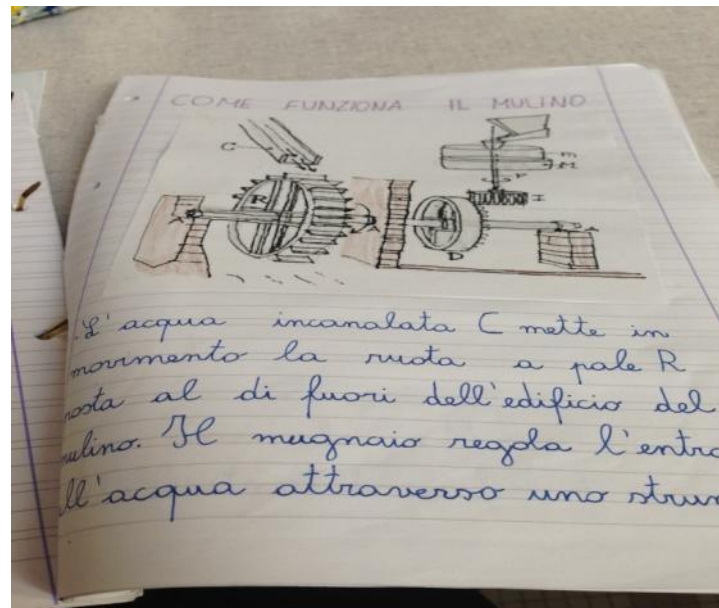 COME FUNZIONA IL MULINO
C
R
A
A
m
M
P
I
D
A
L'acqua incanalata C mette in
movimento la ruota a pale R
posta al di fuori dell'edificio del
mulino. Il mugnaio regola l'entra
ll'acqua attraverso uno strum